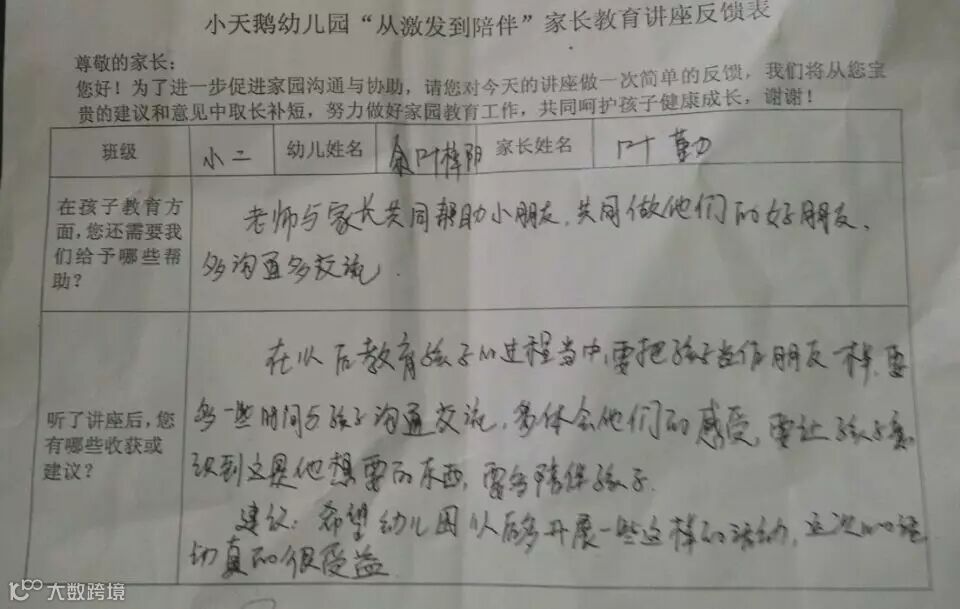 小天鹅幼儿园“从激发到陪伴”家长教育讲座反馈表
尊敬的家长：
您好！为了进一步促进家园沟通与协助，请您对今天的讲座做一次简单的反馈，我们将从您宝
贵的建议和意见中取长补短，努力做好家园教育工作，共同呵护孩子健康成长，谢谢！
班级 小二 幼儿姓名 余叶梓阴 家长姓名 叶勤
在孩子教育方
面，您还需要我
们给予哪些帮
助？
老师与家长共同帮助小朋友，共同做他们的好朋友，
多沟通多交流．
听了讲座后，您
有哪些收获或
建议？
在以后教育孩子的过程当中，要把孩子当作朋友一样，要
多一些时间与孩子沟通交流，多体会他们的感受，要让孩子意
识到这是他想要的东西，要多陪伴孩子．
建议：希望幼儿园以后多开展一些这样的活动，这次的活
动真的很受益
大数跨境